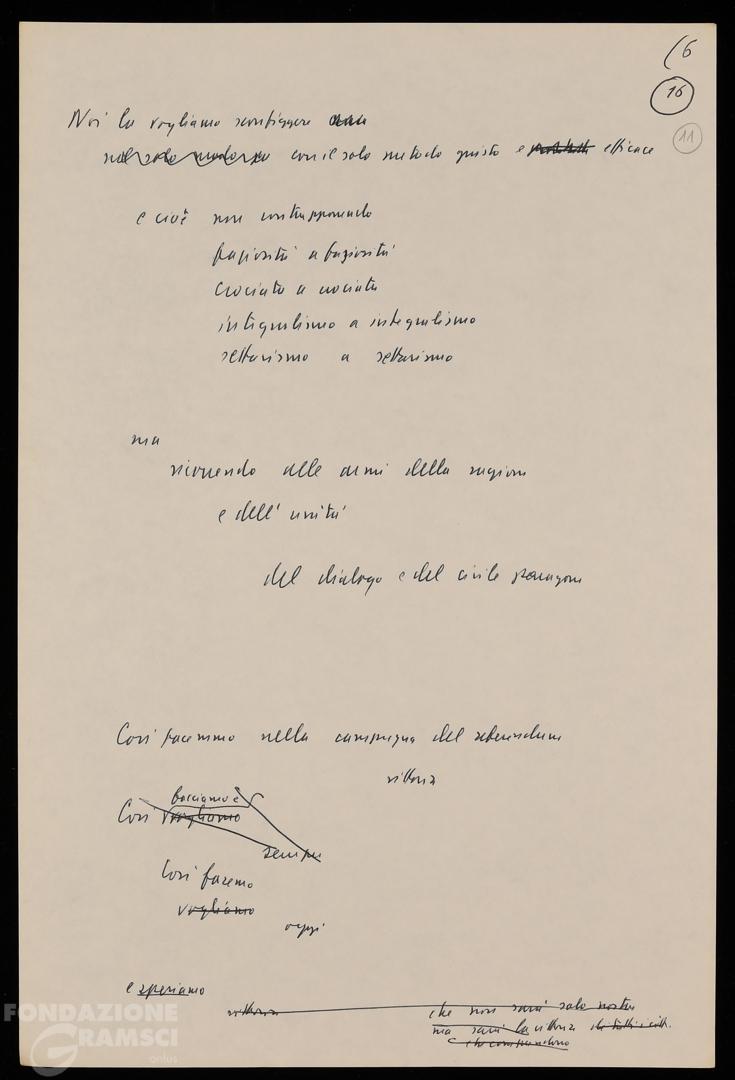 (6
16
11
Noi la vogliamo sconfiggere
nel solo modo con il solo metodo giusto e efficace
e cioè non contrapponendo
faziosità a faziosità
crociata a crociata
integralismo a integralismo
settarismo a settarismo
ma
ricorrendo alle armi della ragione
e dell'unità
del dialogo e del civile paragone
Così facemmo nella campagna del referendum
vittoria
facciamo
Così vogliamo
sempre
Così faremo
vogliamo
oggi
e speriamo
vittoria che non sarà solo nostra
ma sarà la vittoria di tutti
che
FONDAZIONE
GRAMSCI
onlus